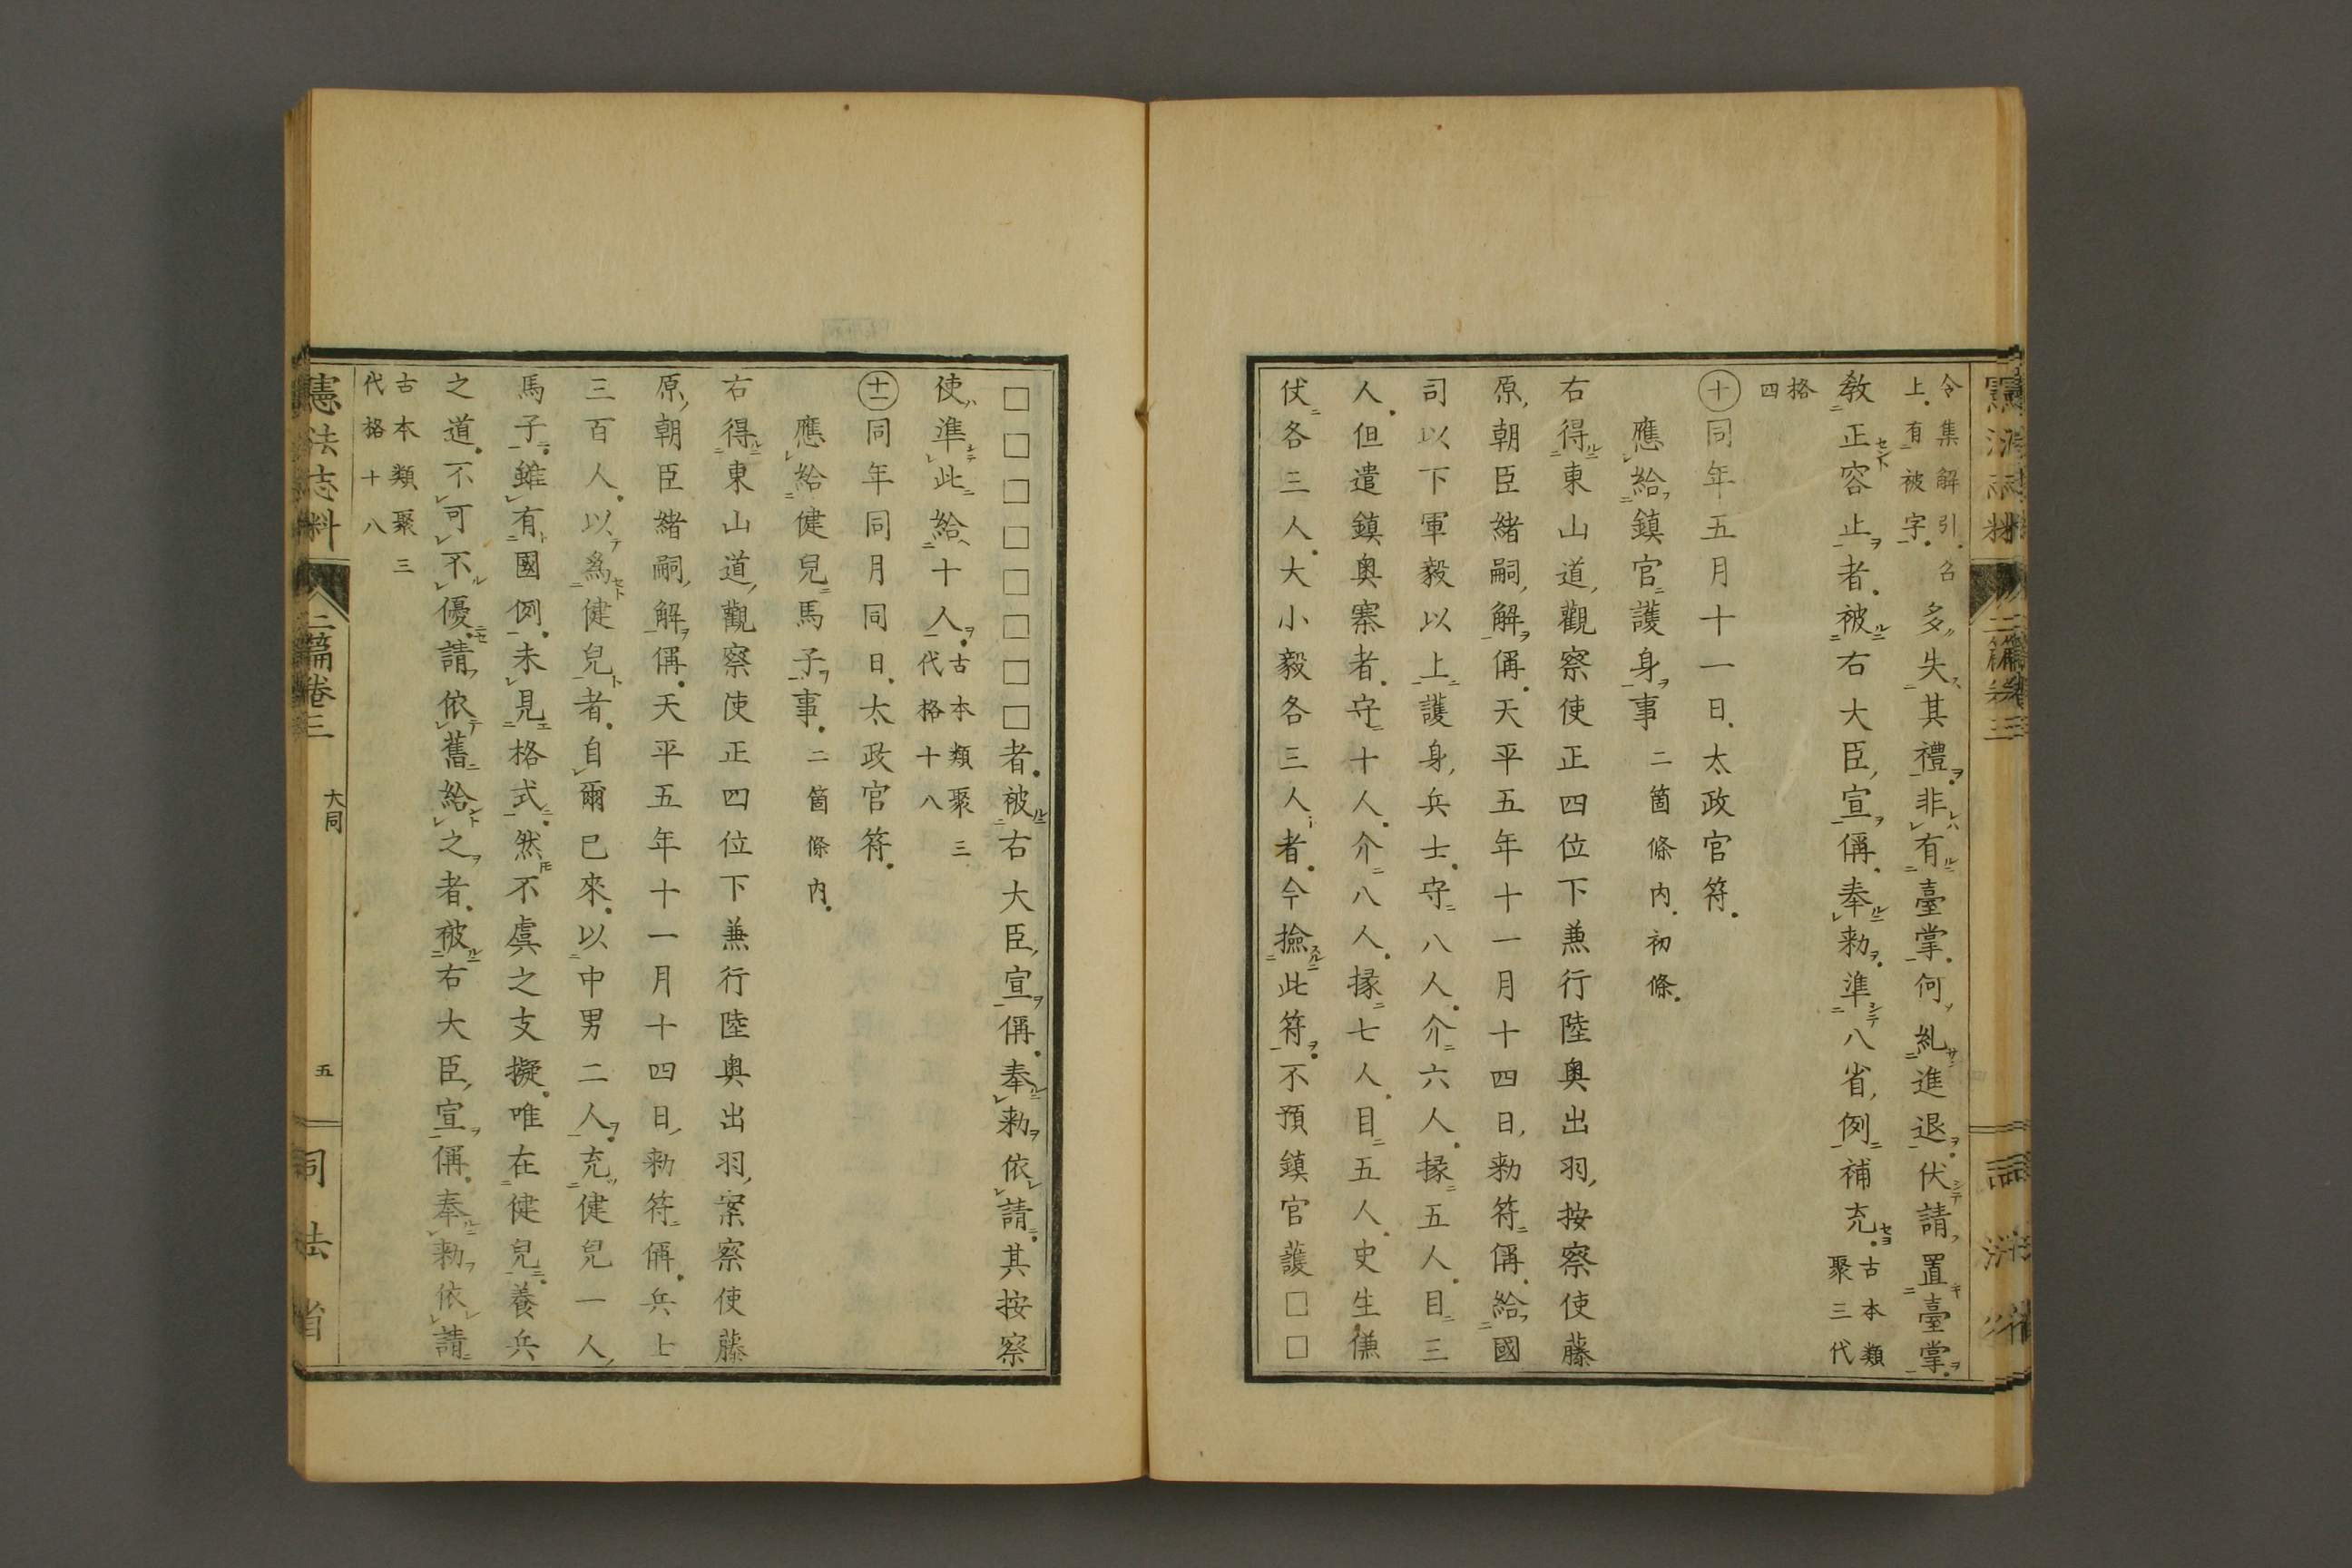 令集解引、名
上、有被字、
多失其禮。非有臺掌。何糺進退。伏請置臺掌。
教正容止者。被右大臣宣偁、奉勅。準八省例補充。古本類聚三代
格四
㊉同年五月十一日、太政官符。
應給鎮官護身事 二箇條内、初條。
右得東山道觀察使正四位下兼行陸奥出羽按察使藤
原朝臣緒嗣解偁。天平五年十一月十四日勅符偁、給國
司以下軍毅以上護身兵士。守八人。介六人。掾五人。目三
人。但遣鎮奥寨者。守十人。介八人。掾七人。目五人。史生傔
仗各三人。大小毅各三人者。今撿此符。不預鎮官護□□
□□□□□□□□者。被右大臣宣偁。奉勅依請。其按察
使準此給十人。古本類聚三代格十八
⑪同年同月同日、太政官符。
應給健兒馬子事。二箇條内。
右得東山道觀察使正四位下兼行陸奥出羽案察使藤
原朝臣緒嗣解偁。天平五年十一月十四日勅符偁。兵士
三百人。以爲健兒者。自爾已來。以中男二人。充健兒一人
馬子。雖有國例。未見格式。然不虞之支擬。唯在健兒。養兵
之道。不可不優。請依舊給之者。被右大臣宣偁。奉勅依請
古本類聚三
代格十八
憲法志料 二篇卷三 大同 五 司法省